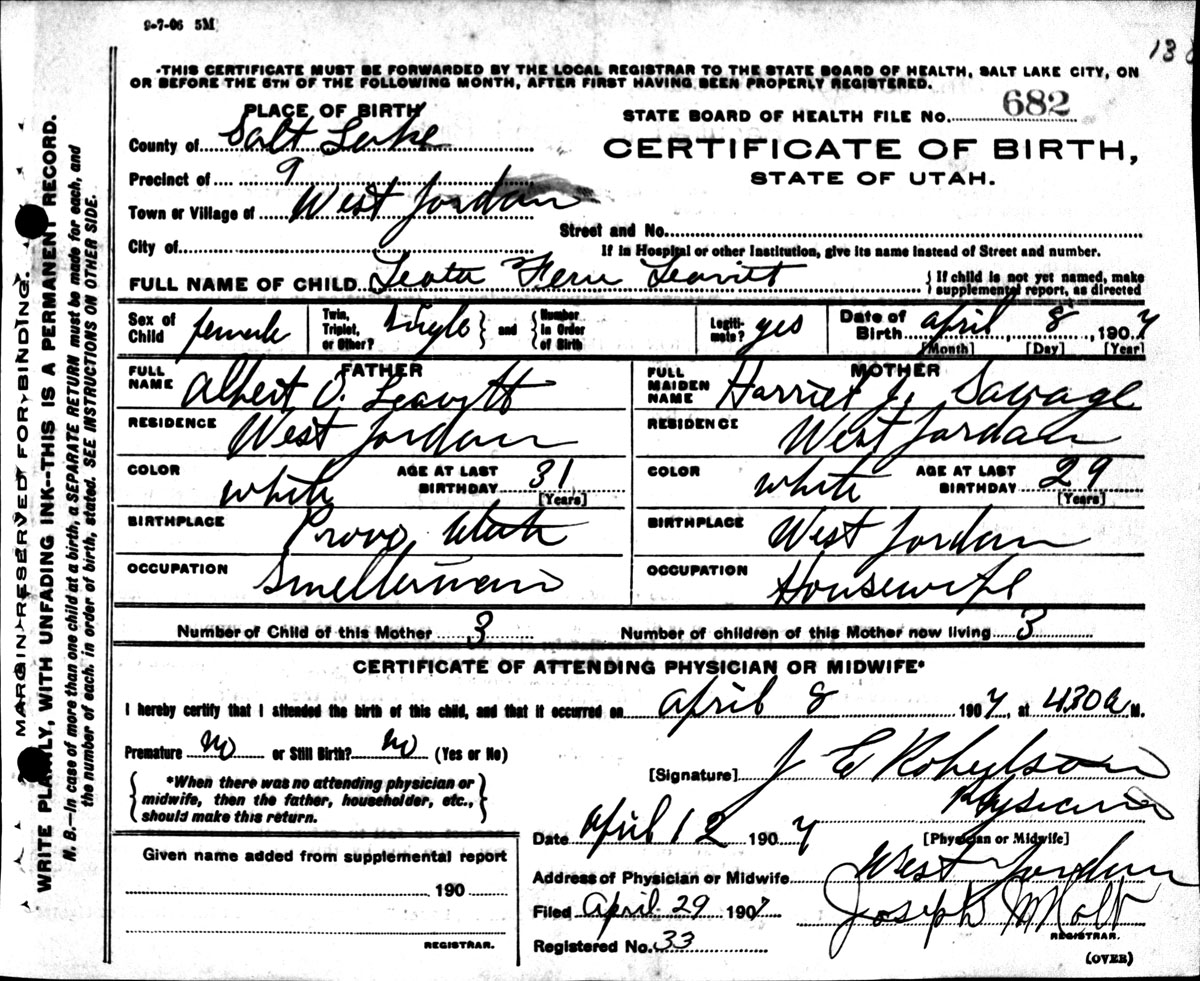 9-7-06 5M
138
THIS CERTIFICATE MUST BE FORWARDED BY THE LOCAL REGISTRAR TO THE STATE BOARD OF HEALTH, SALT LAKE CITY, ON
OR BEFORE THE 5TH OF THE FOLLOWING MONTH, AFTER FIRST HAVING BEEN PROPERLY REGISTERED.
PLACE OF BIRTH
STATE BOARD OF HEALTH FILE No. 682
County of Salt Lake
CERTIFICATE OF BIRTH,
STATE OF UTAH.
Precinct of 9
Town or Village of West Jordan
Street and No.
City of
If in Hospital or other Institution, give its name instead of Street and number.
FULL NAME OF CHILD Leota Fern Leavitt
If child is not yet named, make
supplemental report, as directed
Sex of Child female
Twin, Triplet, or Other? Single and Number in Order of Birth
Legitimate? yes
Date of Birth april 8, 1907
[Month] [Day] [Year]
FATHER
MOTHER
FULL NAME Albert O. Leavitt
FULL MAIDEN NAME Harriet J. Savage
RESIDENCE West Jordan
RESIDENCE West Jordan
COLOR white AGE AT LAST BIRTHDAY 31 [Years]
COLOR white AGE AT LAST BIRTHDAY 29 [Years]
BIRTHPLACE Provo Utah
BIRTHPLACE West Jordan
OCCUPATION Smelterman
OCCUPATION Housewife
Number of Child of this Mother 3 Number of children of this Mother now living 3
CERTIFICATE OF ATTENDING PHYSICIAN OR MIDWIFE*
I hereby certify that I attended the birth of this child, and that it occurred on april 8 1907, at 430 a M.
Premature No or Still Birth? No (Yes or No)
*When there was no attending physician or
midwife, then the father, householder, etc.,
should make this return.
[Signature] J E
Physician
Date april 12 1907
[Physician or Midwife]
Given name added from supplemental report
190
REGISTRAR.
Address of Physician or Midwife West Jordan
Filed April 29 1907 Joseph M Holt
REGISTRAR.
Registered No. 33
(OVER)
MARGIN RESERVED FOR BINDING.
WRITE PLAINLY, WITH UNFADING INK--THIS IS A PERMANENT RECORD.
N. B.--In case of more than one child at a birth, a SEPARATE RETURN must be made for each, and
the number of each, in order of birth, stated. SEE INSTRUCTIONS ON OTHER SIDE.